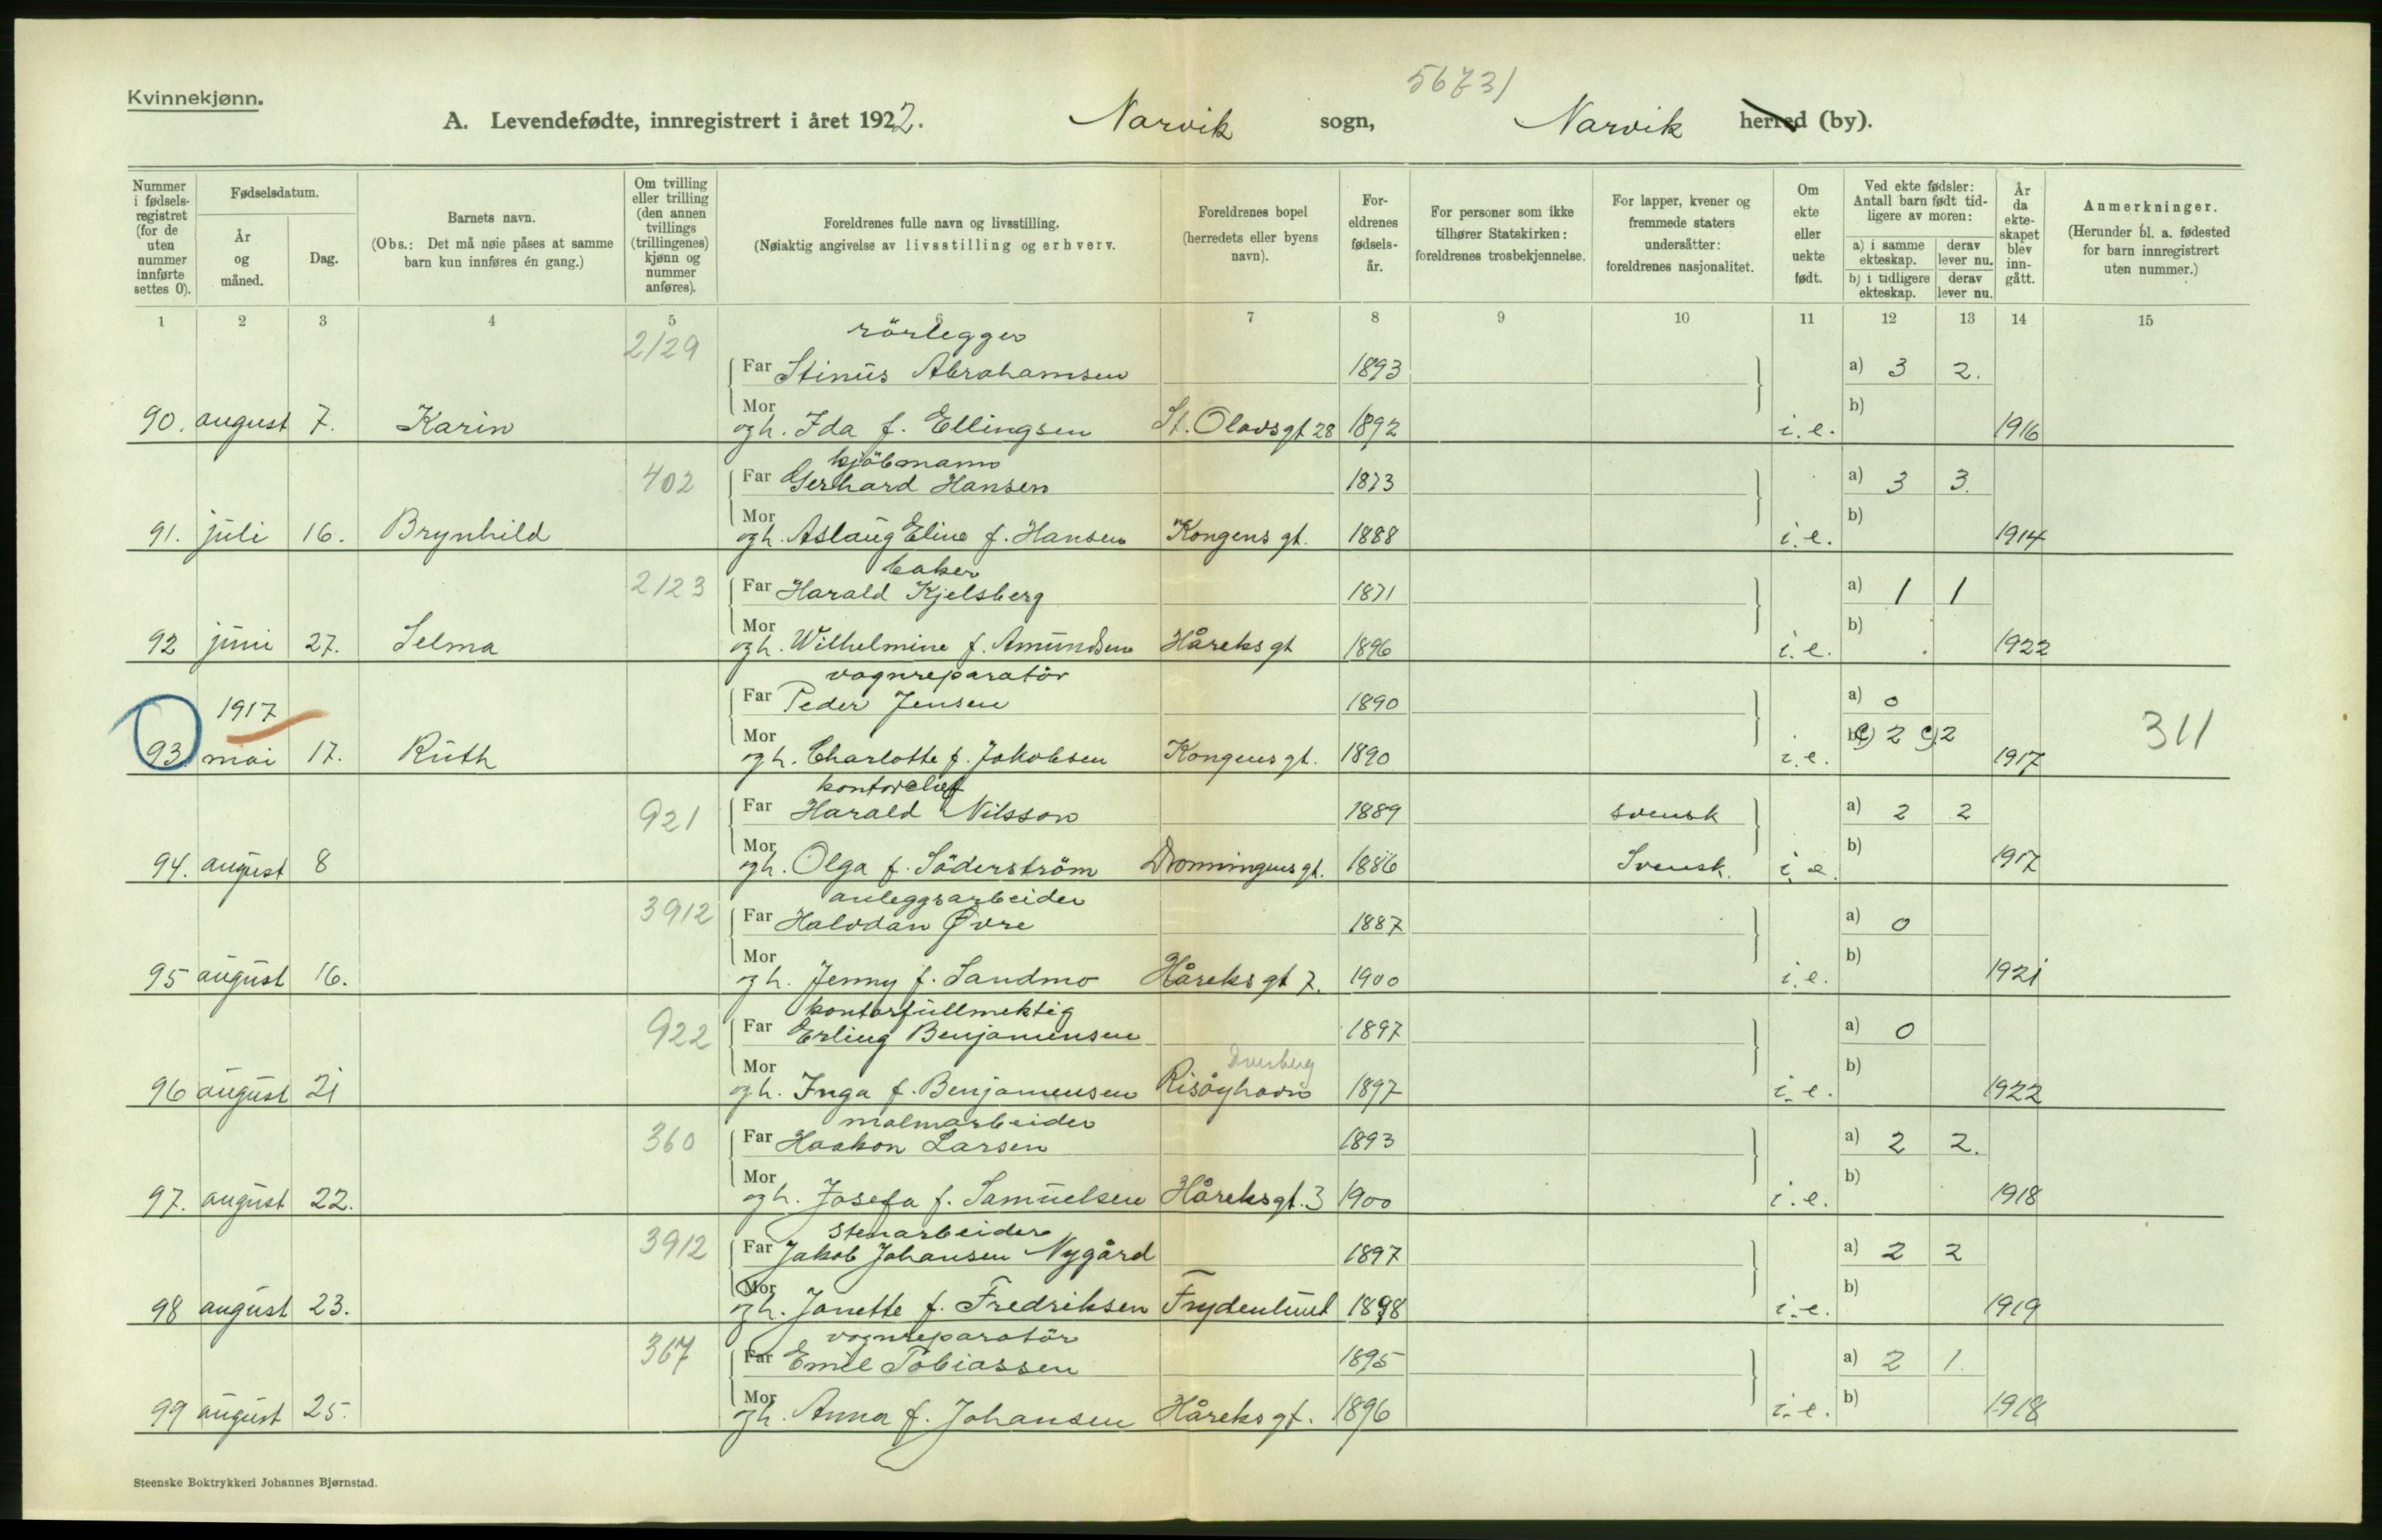 Kvinnekjønn.
56731
A. Levendefødte, innregistrert i året 1922. Narvik sogn, Narvik herred (by).
Nummer i fødselsregistret (for de uten nummer innførte settes 0).
Fødselsdatum.
År og måned.
Dag.
Barnets navn.
(Obs.: Det må nøie påses at samme barn kun innføres én gang.)
Om tvilling eller trilling (den annen tvillings (trillingenes) kjønn og nummer anføres).
Foreldrenes fulle navn og livsstilling.
(Nøiaktig angivelse av livsstilling og erhverv.
Foreldrenes bopel (herredets eller byens navn).
Foreldrenes fødselsår.
For personer som ikke tilhører Statskirken: foreldrenes trosbekjennelse.
For lapper, kvener og fremmede staters undersåtter: foreldrenes nasjonalitet.
Om ekte eller uekte født.
Ved ekte fødsler: Antall barn født tidligere av moren:
a) i samme ekteskap. derav lever nu.
b) i tidligere ekteskap. derav lever nu.
År da ekteskapet blev inngått.
Anmerkninger.
(Herunder bl. a. fødested for barn innregistrert uten nummer.)
1 2 3 4 5 6 7 8 9 10 11 12 13 14 15
2/29 rörlegger
Far Stinus Abrahamsen 1893 a) 3 2.
90. august 7. Karin Mor og h. Ida f. Ellingsen St. Olavsgt 28 1892 i. e. b) 1916
402 kjöbmann
Far Gerhard Hansen 1873 a) 3 3.
91. juli 16. Brynhild Mor og h. Aslaug Eline f. Hansen Kongens gt. 1888 i. e. b) 1914
2/23 baker
Far Harald Kjelsberg 1871 a) 1 1
92 juni 27. Selma Mor og h. Wilhelmine f. Amundsen Håreks gt 1896 i. e. b) 1922
vognreparatör
1917 Far Peder Jensen 1890 a) 0
93 mai 17. Ruth Mor og h. Charlotte f. Jakobsen Kongens gt. 1890 i. e. b) c) 2 c) 2 1917 311
kontorchef
921 Far Harald Nilsson 1889 svensk a) 2 2
94. august 8 Mor og h. Olga f. Söderström Dronningensgt. 1886 Svensk. i. e. b) 1917
anleggsarbeider
3912 Far Halvdan Øvre 1887 a) 0
95 august 16. Mor og h. Jenny f. Sandmo Håreks gt 7. 1900 i. e. b) 1921
kontorfullmektig
922 Far Erling Benjaminsen 1897 a) 0
Dverberg
96 august 21 Mor og h. Inga f. Benjamensen Risöyhavn 1897 i. e. b) 1922
malmarbeider
360 Far Haakon Larsen 1893 a) 2 2.
97. august 22. Mor og h. Josefa f. Samuelsen Håreksgt. 3 1900 i. e. b) 1918
Stenarbeider
3912 Far Jakob Johansen Nygård 1897 a) 2 2
98 august 23. Mor og h. Janette f. Fredriksen Frydenlund 1898 i. e. b) 1919
vognreparatör
367 Far Emil Tobiassen 1895 a) 2 1.
99 august 25. Mor og h. Anna f. Johansen Håreks gt. 1896 i. e. b) 1918
Steenske Boktrykkeri Johannes Bjørnstad.